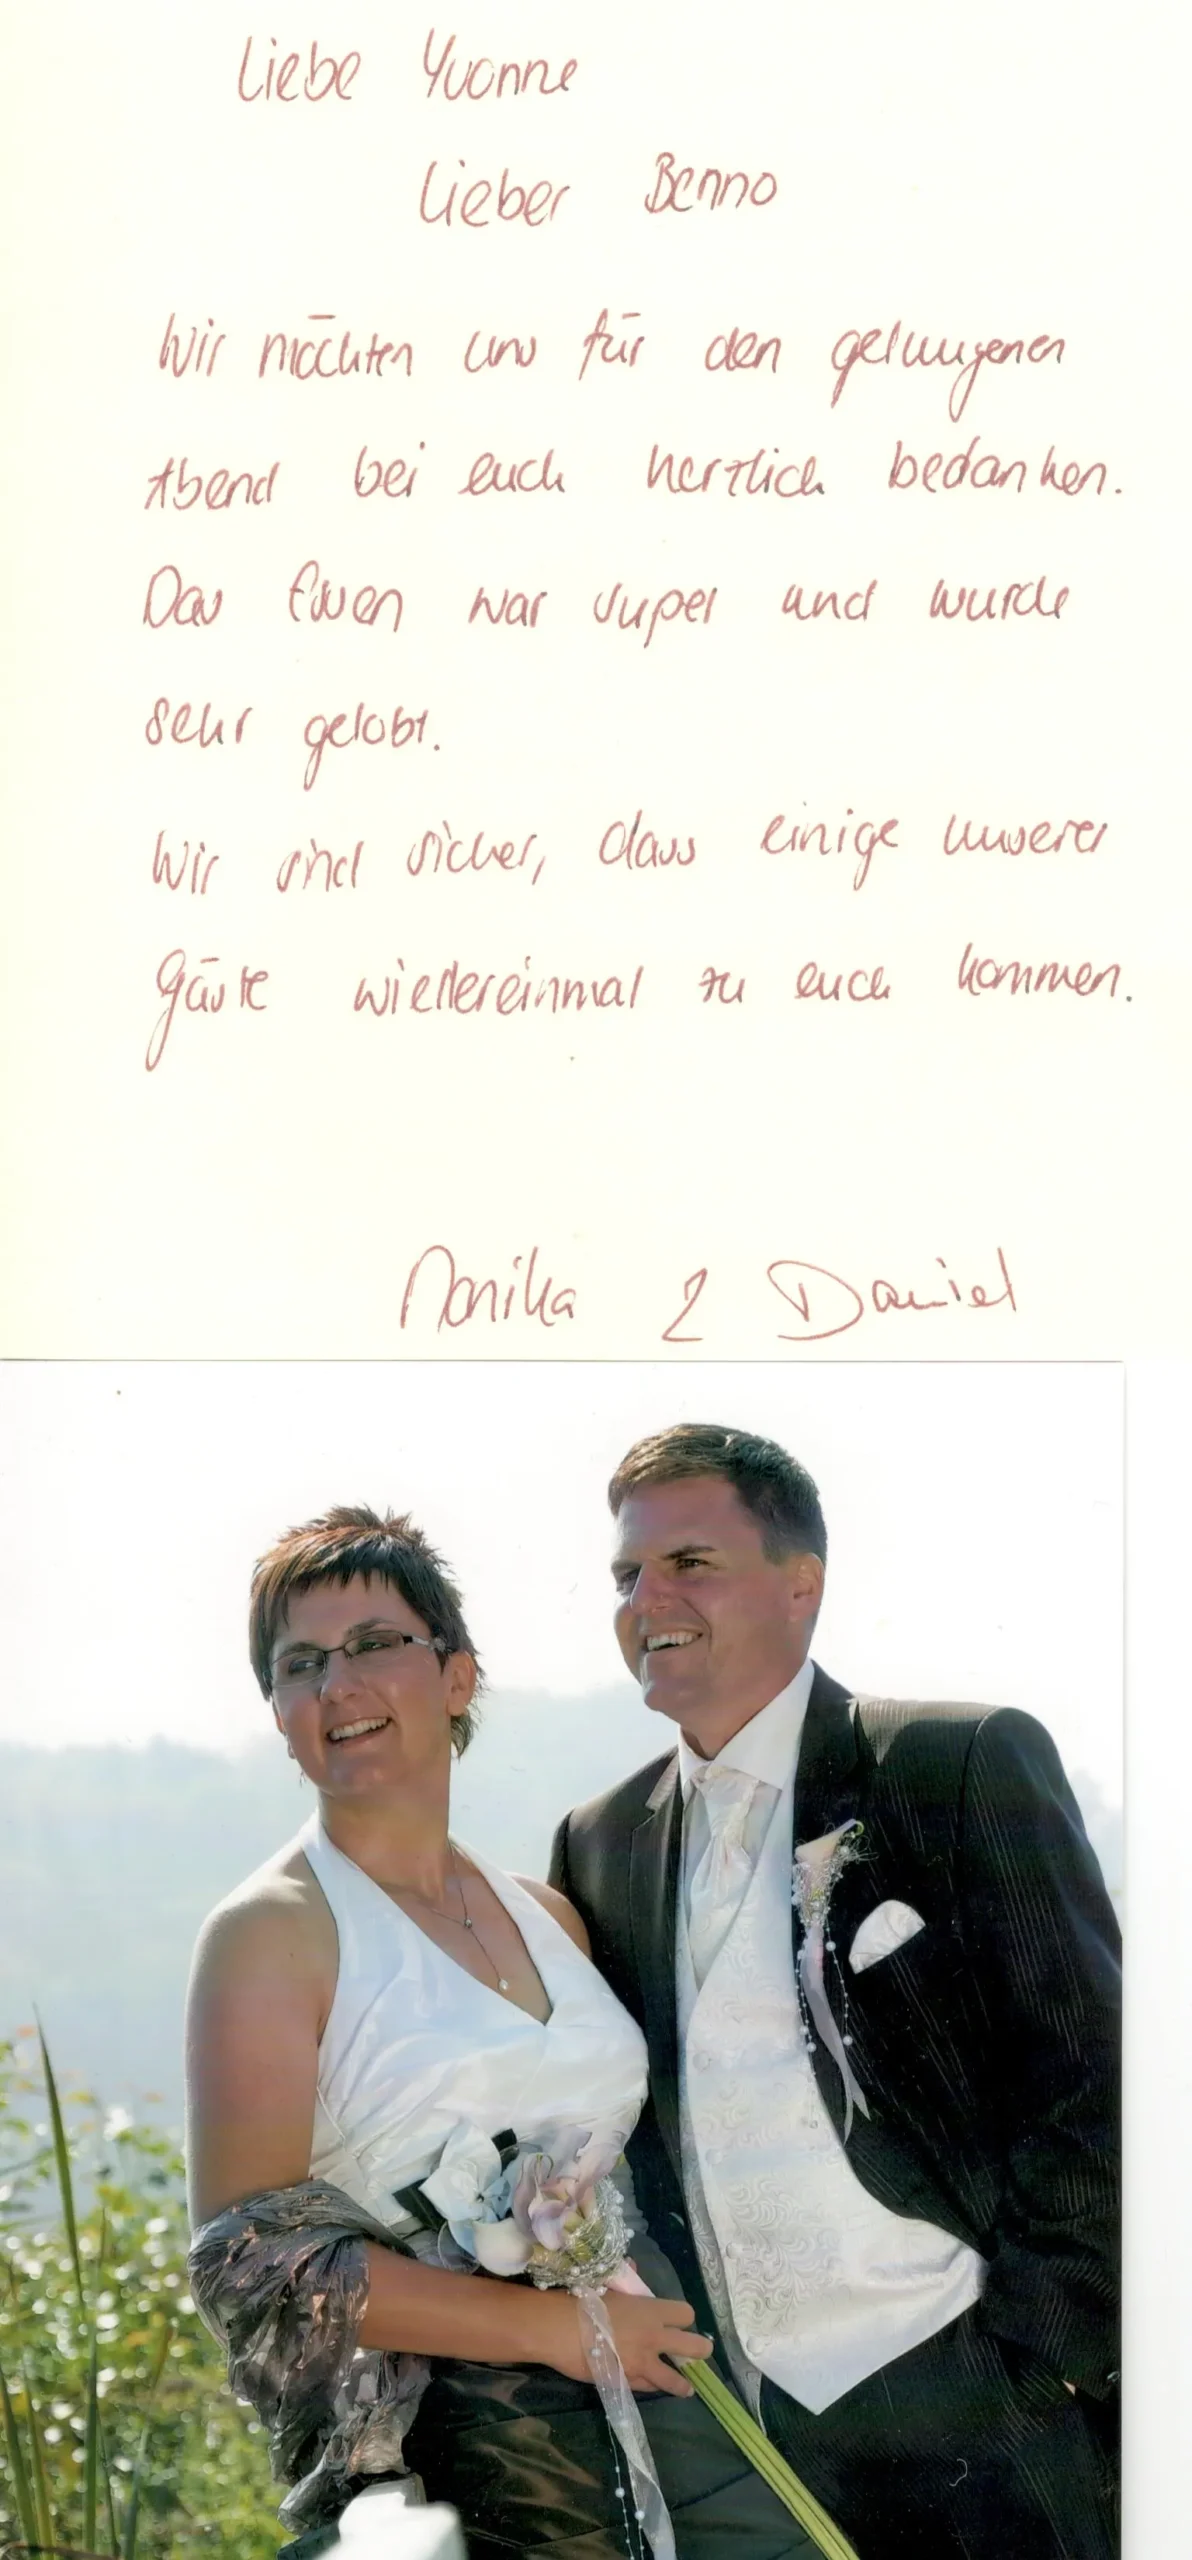 Liebe Yvonne
Lieber Benno
Wir möchten uns für den gelungenen
Abend bei euch herzlich bedanken.
Das Essen war super und wurde
sehr gelobt.
Wir sind sicher, dass einige unserer
Gäste wiedereinmal zu euch kommen.
Monika & Daniel